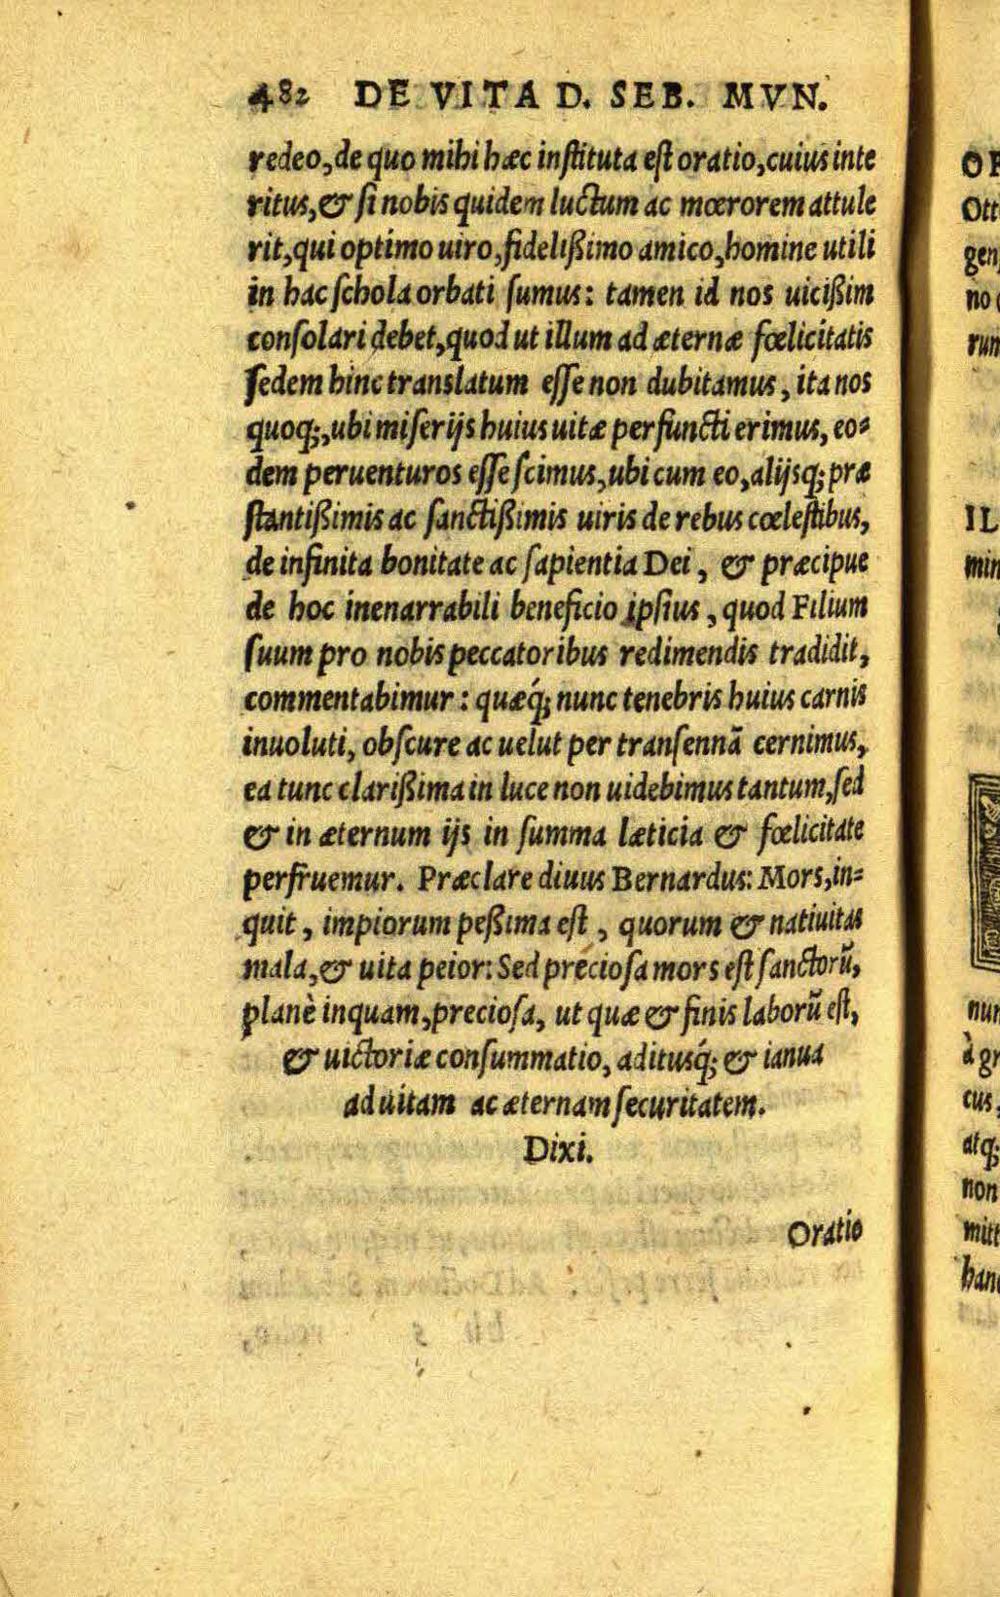 482 DE VITA D. SEB. MVN.
redeo, de quo mihi hæc instituta est oratio, cuius inte
ritus, & si nobis quidem luctum ac mœrorem attule
rit, qui optimo uiro, fidelißimo amico, homine utili
in hac schola orbati sumus: tamen id nos uicißim
consolari debet, quod ut illum ad æternæ fœlicitatis
sedem hinc translatum esse non dubitamus, ita nos
quoq;, ubi miserijs huius uitæ perfuncti erimus, eo-
dem peruenturos esse scimus, ubi cum eo, alijsq; præ
stantißimis ac sanctißimis uiris de rebus cœlestibus,
de infinita bonitate ac sapientia Dei, & præcipue
de hoc inenarrabili beneficio ipsius, quod Filium
suum pro nobis peccatoribus redimendis tradidit,
commentabimur: quæq́; nunc tenebris huius carnis
inuoluti, obscure ac uelut per transennã cernimus,
ea tunc clarißima in luce non uidebimus tantum, sed
& in æternum ijs in summa læticia & fœlicitate
perfruemur. Præclare diuus Bernardus: Mors, in-
quit, impiorum peßima est, quorum & natiuitas
mala, & uita peior: Sed preciosa mors est sanctorũ,
planè inquam, preciosa, ut quæ & finis laborũ est,
& uictoriæ consummatio, aditusq́; & ianua
ad uitam ac æternam securitatem.
Dixi.
Oratio
Ott
gen
no
run
IL
min
nun
à gr
cus,
atq;
non
mitt
han